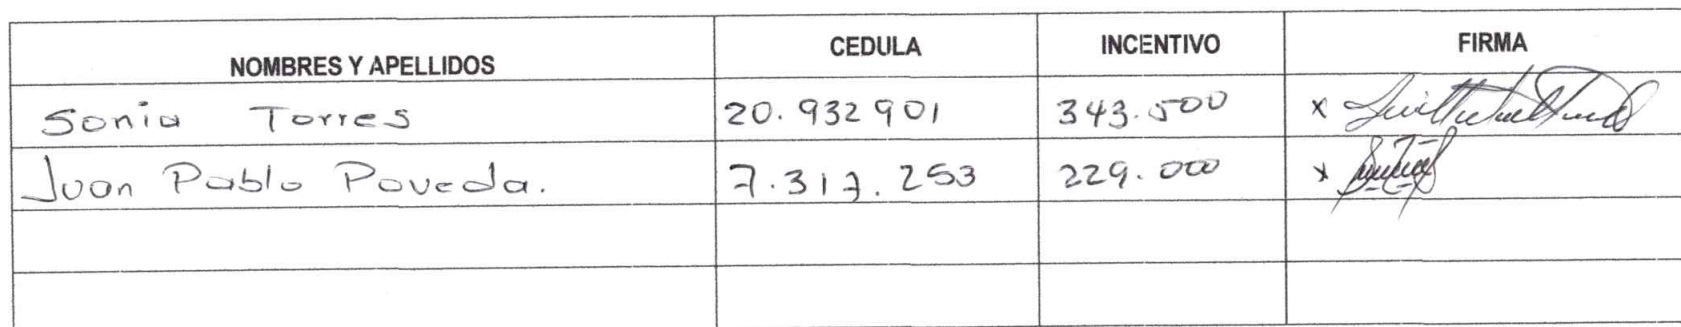 NOMBRES Y APELLIDOS CEDULA INCENTIVO FIRMA
Sonia Torres 20.932901 343.500 x
Juan Pablo Poveda. 7.317.253 229.000 x